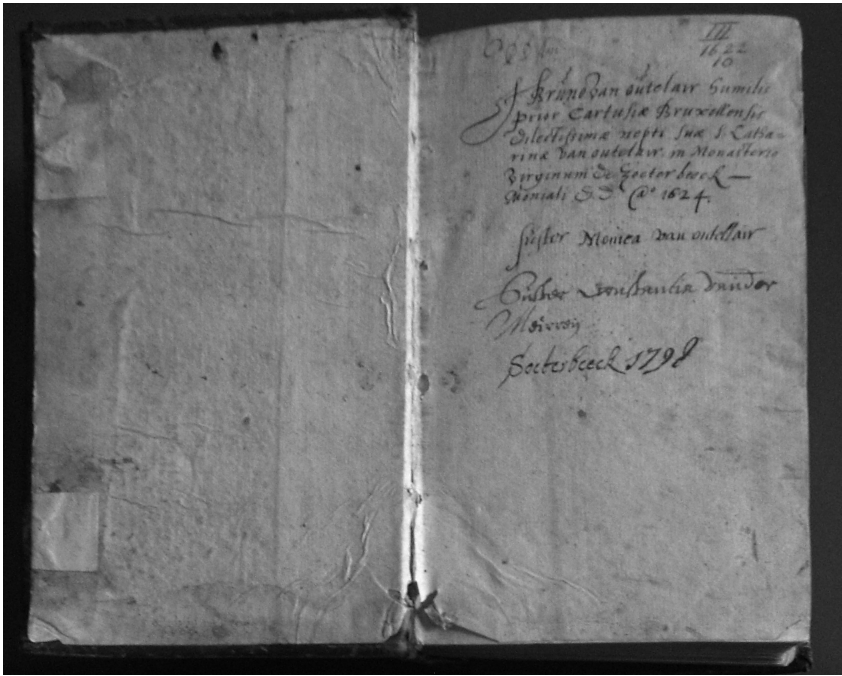 III
1622
10
F Bruno van outelair humilis
prior Cartusiæ Bruxellensis
dilectissimæ nepti suæ S. Catha-
rinæ van outelair in Monasterio
Virginum de Zoeterbeeck —
Moniali D. D. @° 1624.
suster Monica van outellair
Suster Constantia vander
Soeterbeeck 1798